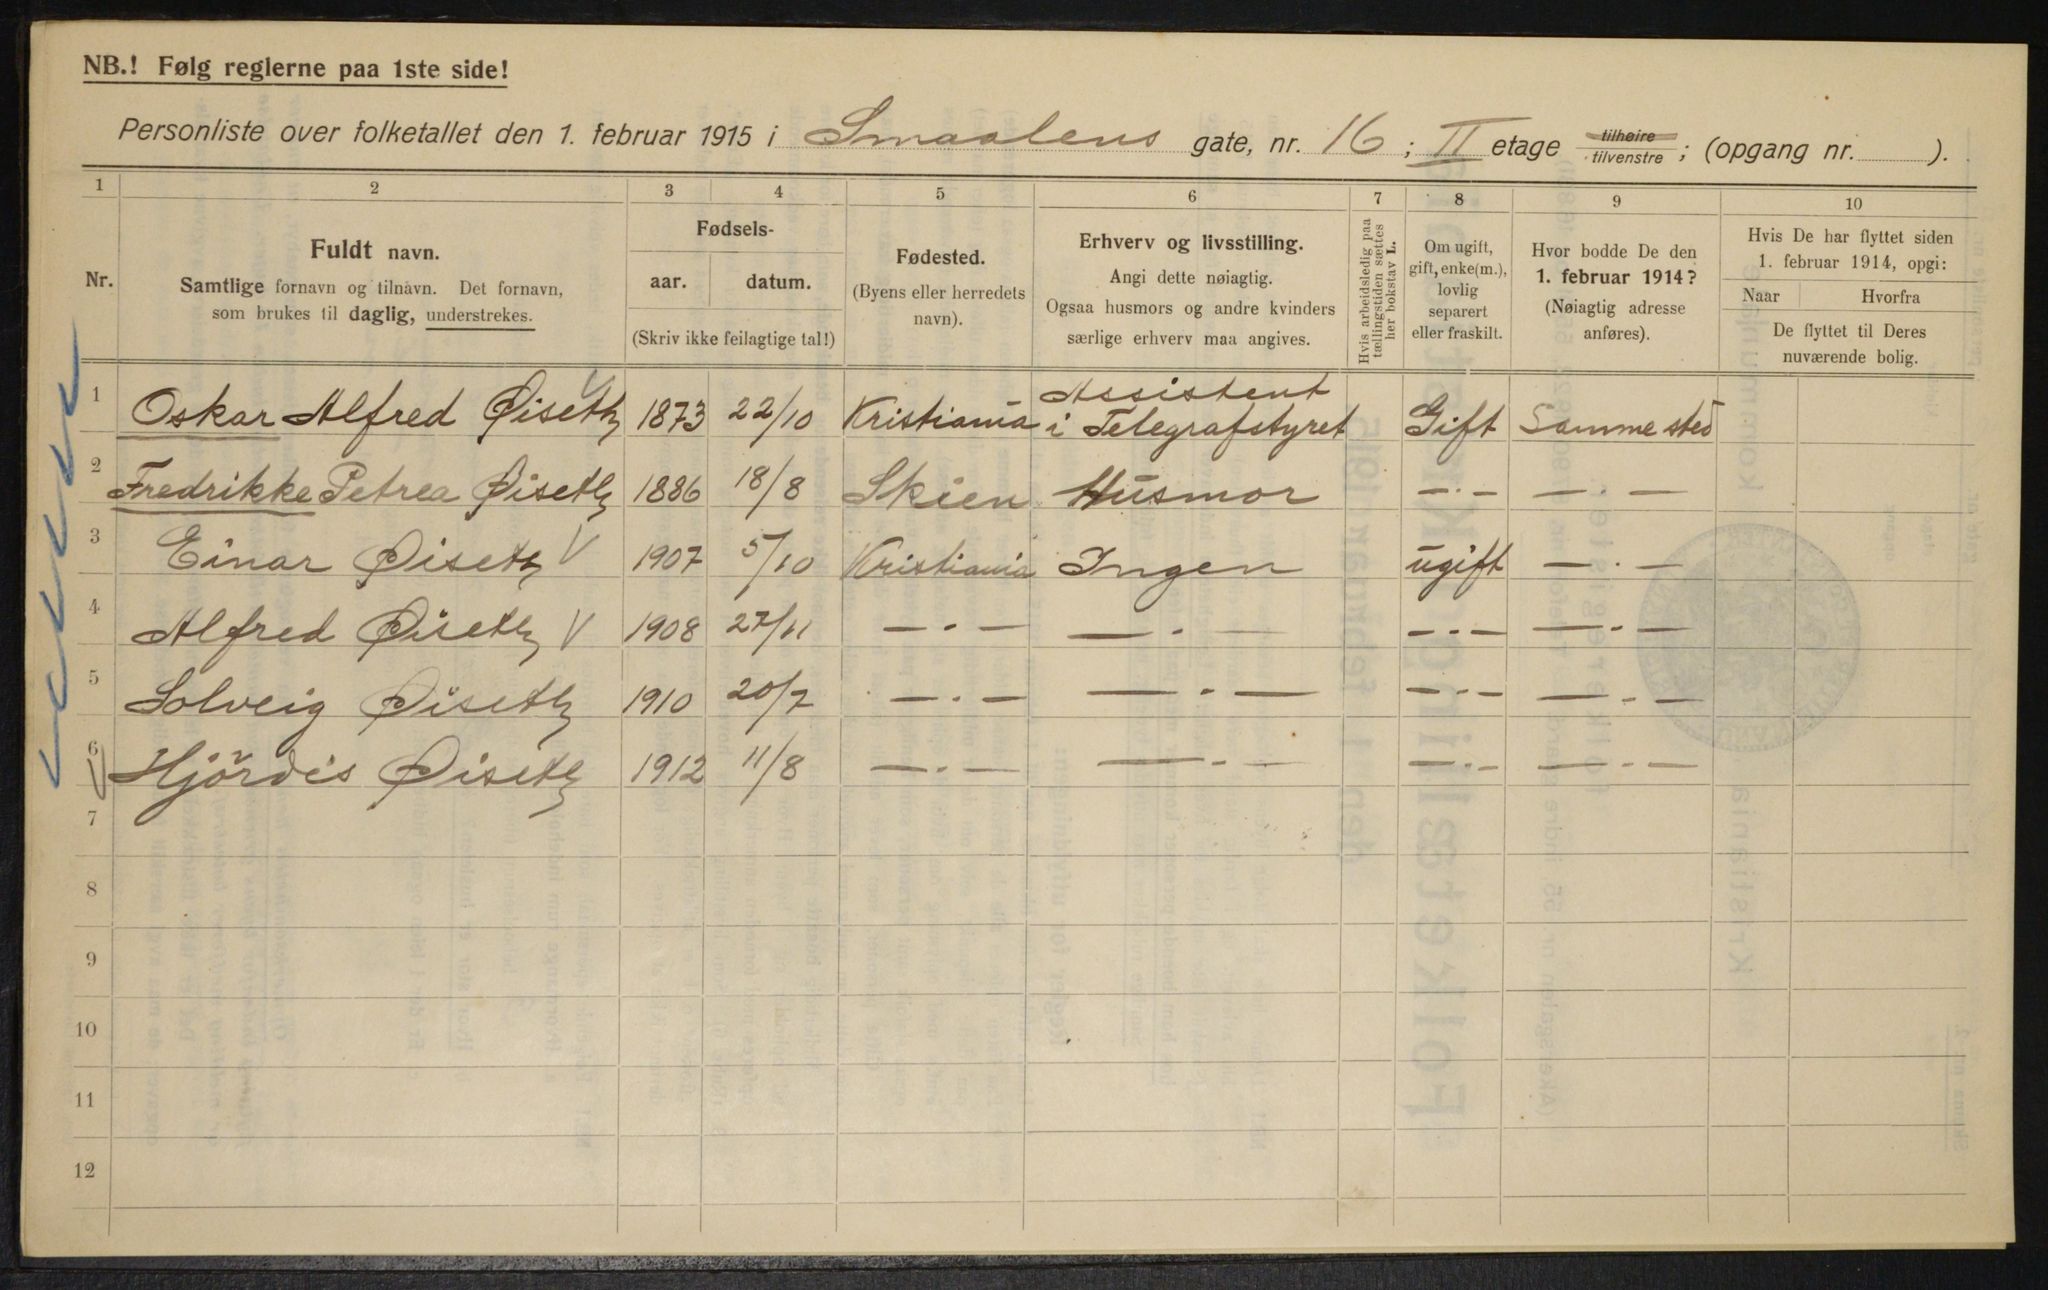 NB.! Følg reglerne paa 1ste side!
Personliste over folketallet den 1. februar 1915 i Smaalens gate, nr. 16; II etage tilhøire / tilvenstre; (opgang nr. ).
1 2 3 4 5 6 7 8 9 10
Nr.
Fuldt navn.
Samtlige fornavn og tilnavn. Det fornavn,
som brukes til daglig, understrekes.
Fødsels-
aar. datum.
(Skriv ikke feilagtige tal!)
Fødested.
(Byens eller herredets
navn).
Erhverv og livsstilling.
Angi dette nøiagtig.
Ogsaa husmors og andre kvinders
særlige erhverv maa angives.
Hvis arbeidsledig paa
tællingstiden sættes
her bokstav L.
Om ugift,
gift, enke(m.),
lovlig
separert
eller fraskilt.
Hvor bodde De den
1. februar 1914?
(Nøiagtig adresse
anføres).
Hvis De har flyttet siden
1. februar 1914, opgi:
Naar Hvorfra
De flyttet til Deres
nuværende bolig.
1 Oskar Alfred Øiseth 1873 22/10 Kristiania Assistent i Telegrafstyret Gift Samme sted
2 Fredrikke Petrea Øiseth 1886 18/8 Skien Husmor —·— —·—
3 Einar Øiseth V 1907 5/10 Kristiania Ingen ugift —·—
4 Alfred Øiseth V 1908 27/11 —·— —·— —·— —·—
5 Solveig Øiseth 1910 20/7 —·— —·— —·— —·—
6 Hjördis Øiseth 1912 11/8 —·— —·— —·— —·—
7
8
9
10
11
12